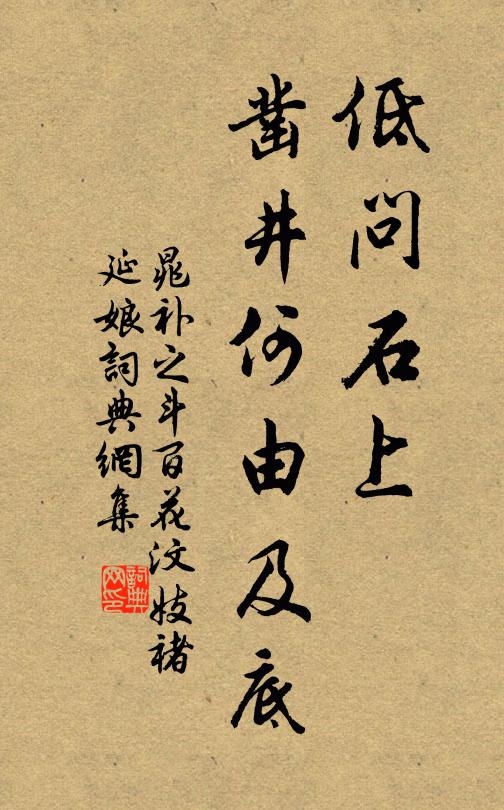 低问石上
凿井何由及底
晁补之斗百花汶妓褚
延娘詞典網集
詞典网印